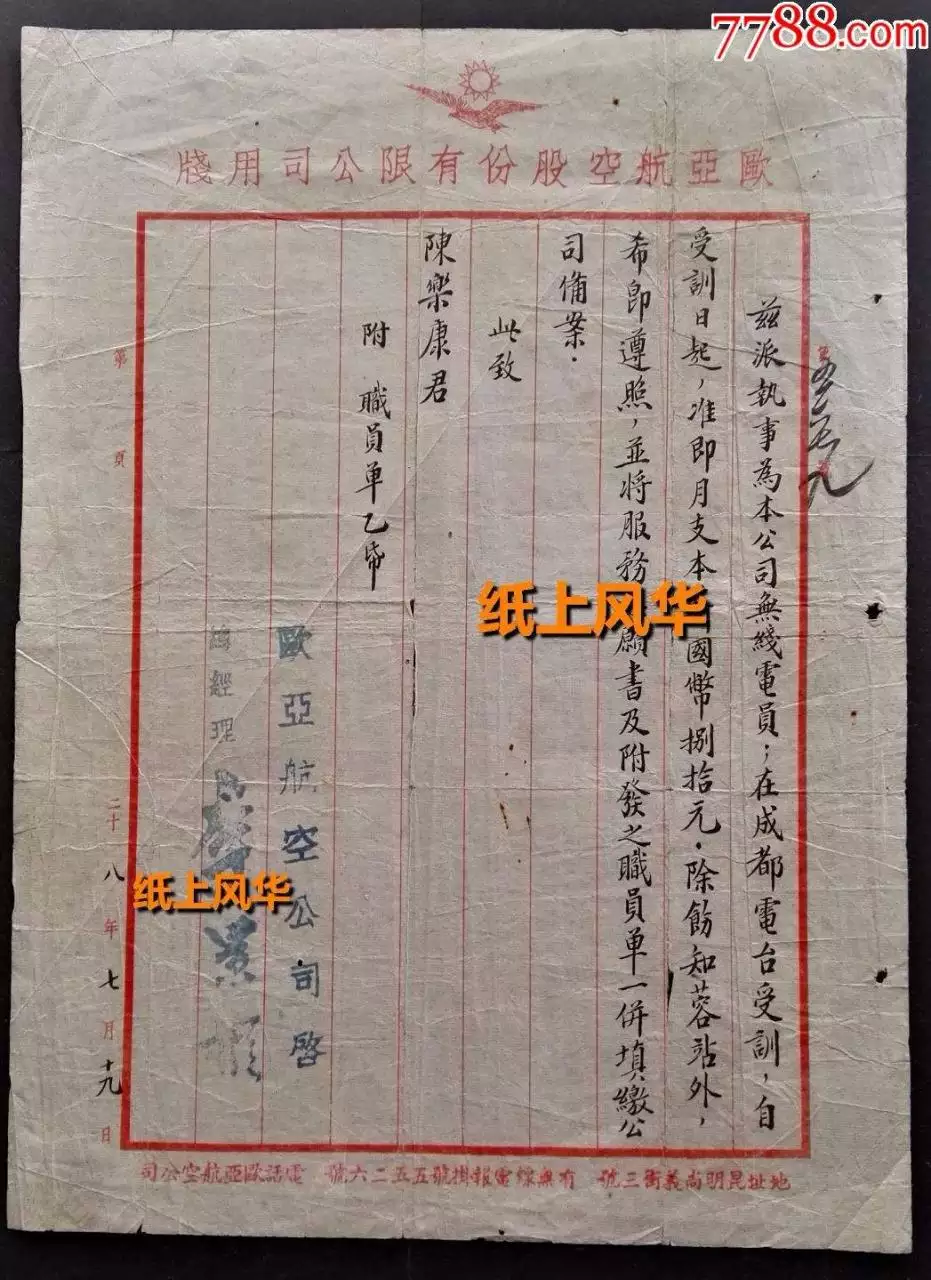 7788.com
歐亞航空股份有限公司用牋
茲派執事為本公司無綫電員；在成都電台受訓，自
受訓日起，准即月支本 國幣捌拾元．除飭知蓉站外，
希即遵照，並將服務 願書及附發之職員單一併填繳公
司備案．
此致
陳樂康君
附 職員單乙帋
歐亞航空公司啓
總經理
二十八年七月十九日
第 頁
纸上风华
纸上风华
地址昆明尚義街三號 有無線電報掛號五五二六號 電話歐亞航空公司